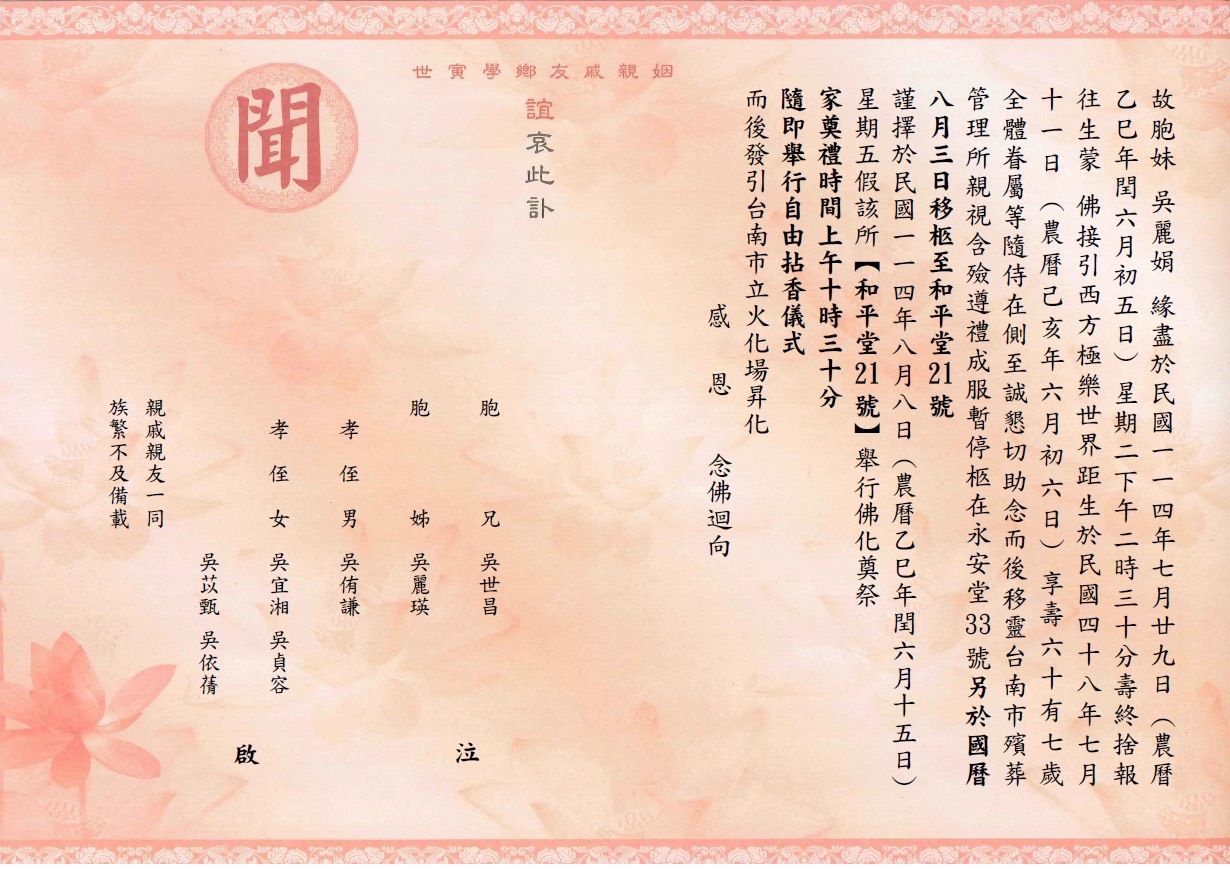 故胞妹 吳麗娟 緣盡於民國一一四年七月廿九日（農曆
乙巳年閏六月初五日）星期二下午二時三十分壽終捨報
往生蒙 佛接引西方極樂世界距生於民國四十八年七月
十一日（農曆己亥年六月初六日）享壽六十有七歲
全體眷屬等隨侍在側至誠懇切助念而後移靈台南市殯葬
管理所親視含殮遵禮成服暫停柩在永安堂33號另於國曆
八月三日移柩至和平堂21號
謹擇於民國一一四年八月八日（農曆乙巳年閏六月十五日）
星期五假該所【和平堂21號】舉行佛化奠祭
家奠禮時間上午十時三十分
隨即舉行自由拈香儀式
而後發引台南市立火化場昇化
感恩 念佛迴向
姻親戚友鄉學寅世
誼哀此訃
聞
胞兄 吳世昌
胞姊 吳麗瑛
孝侄男 吳侑謙
孝侄女 吳宜湘 吳貞容
吳苡甄 吳依蒨
泣啟
親戚親友一同
族繁不及備載